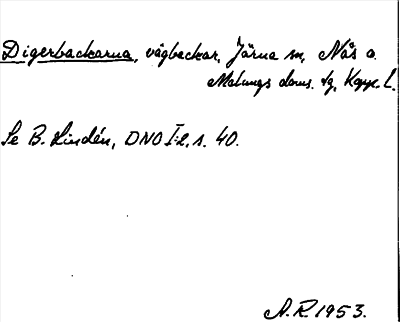 Digerbackarna, vägbackar, Järna sn, Nås o.
Malungs doms. tg, Kopp. l.
Se B. Lindén, DNO I:2, s. 40.
A.R. 1953.